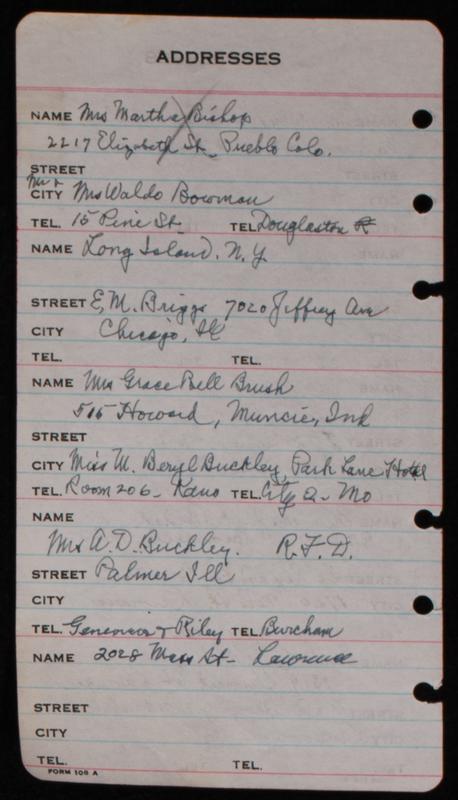 ADDRESSES
NAME Mrs Martha Bishop
2217 Elizabeth St. Pueblo Colo.
STREET
Mr &
CITY Mrs Waldo Bowman
TEL. 15 Pine St. TEL. Douglaston
NAME Long Island, N.Y.
STREET E, M. Briggs 7020 Jeffrey Ave
CITY Chicago, Ill
TEL. TEL.
NAME Mrs Grace Bell Brush
515 Howard, Muncie, Ind
STREET
CITY Miss M. Beryl Buckley, Park Lane Hotel
TEL. Room 206 - Kans TEL. City 2 - Mo
NAME
Mrs A. D. Buckley. R.F.D.
STREET Palmer Ill
CITY
TEL. Genevieve & Riley TEL. Burcham
NAME 2028 Mass St - Lawrence
STREET
CITY
TEL. TEL.
FORM 109 A